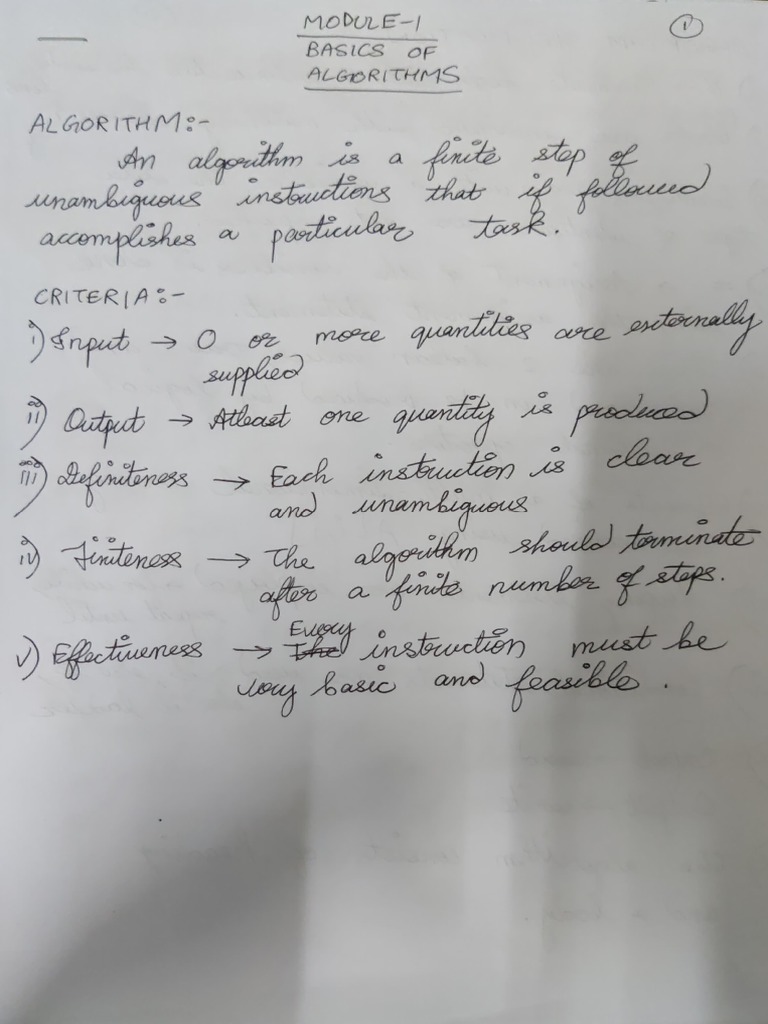 MODULE-1
①
BASICS OF
ALGORITHMS
ALGORITHM:-
An algorithm is a finite step of
unambiguous instructions that if followed
accomplishes a particular task.
CRITERIA:-
i) Input → 0 or more quantities are externally
supplied
ii) Output → Atleast one quantity is produced
iii) Definiteness → Each instruction is clear
and unambiguous
iv) Finiteness → The algorithm should terminate
after a finite number of steps.
Every
v) Effectiveness → The instruction must be
very basic and feasible.